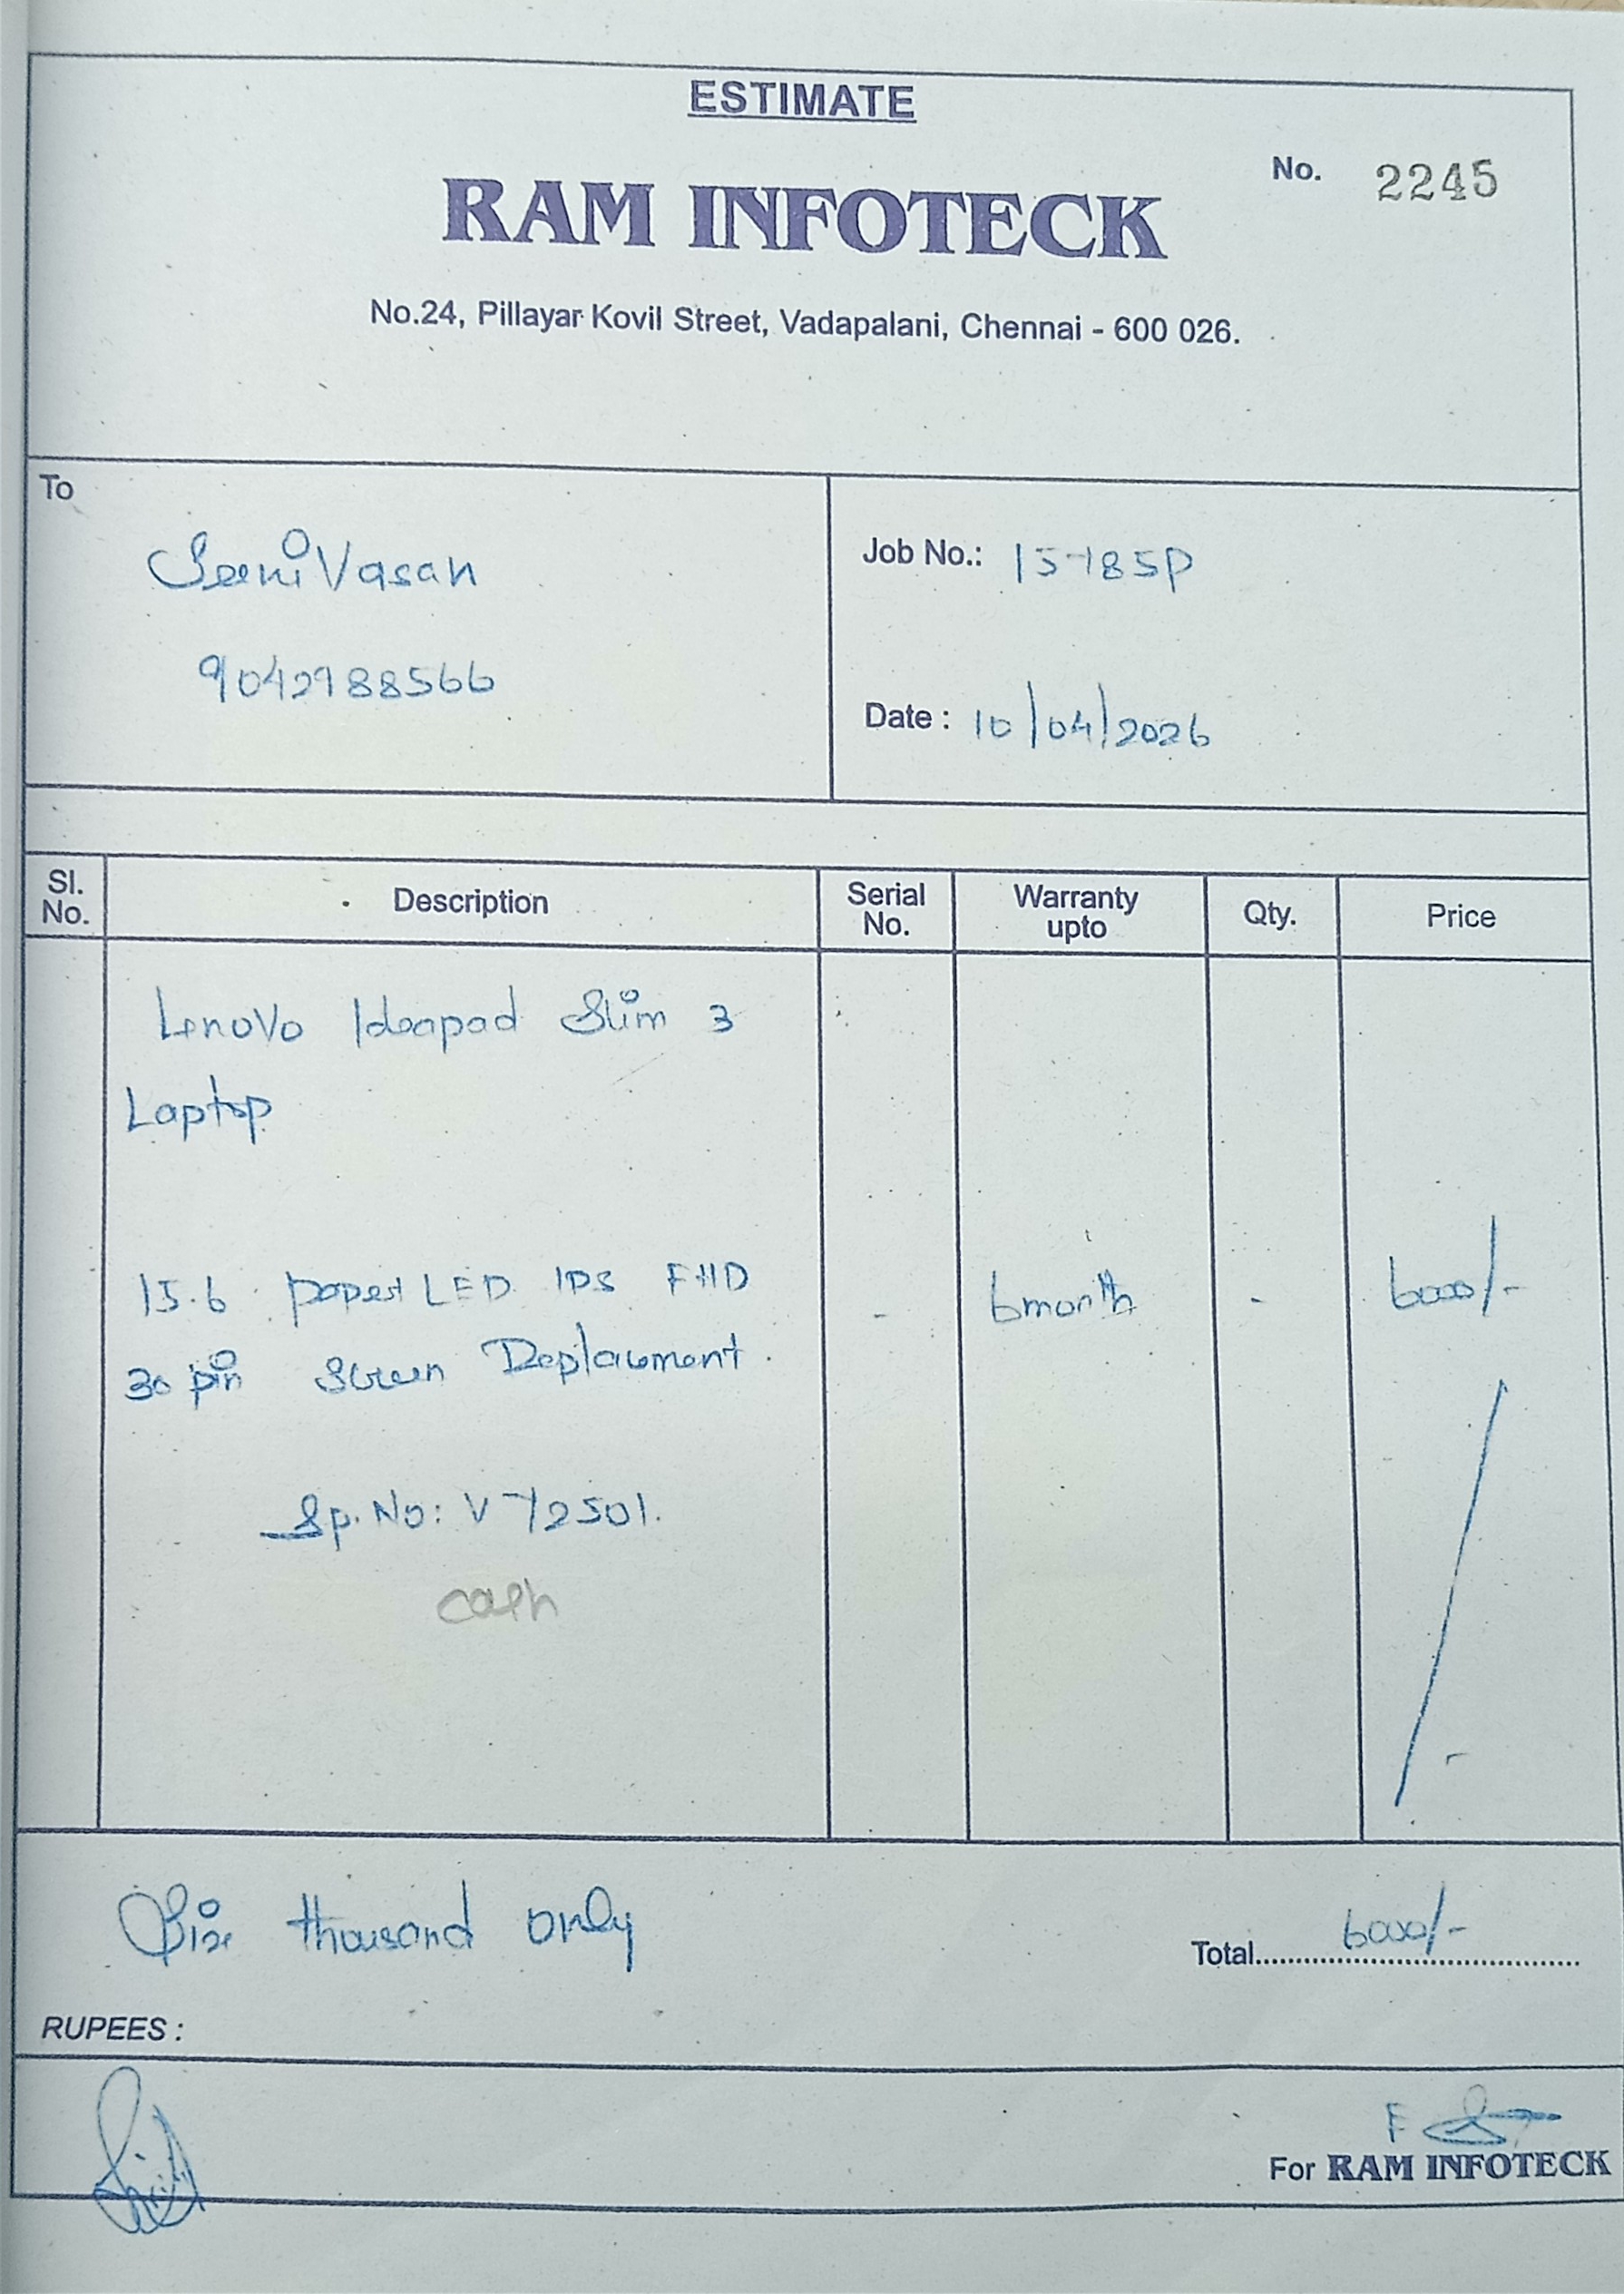 ESTIMATE
No. 2245
RAM INFOTECK
No.24, Pillayar Kovil Street, Vadapalani, Chennai - 600 026.
To
SeeniVasan
9042988566
Job No.: 15785P
Date : 10/04/2026
Sl. No. Description Serial No. Warranty upto Qty. Price
Lenovo Ideapad Slim 3
Laptop
15.6 LED IPS FHD - 6month - 6000/-
30 pin Screen Replacement.
Sp. No: V72501.
cash
Six thousand only
Total 6000/-
RUPEES :
For RAM INFOTECK